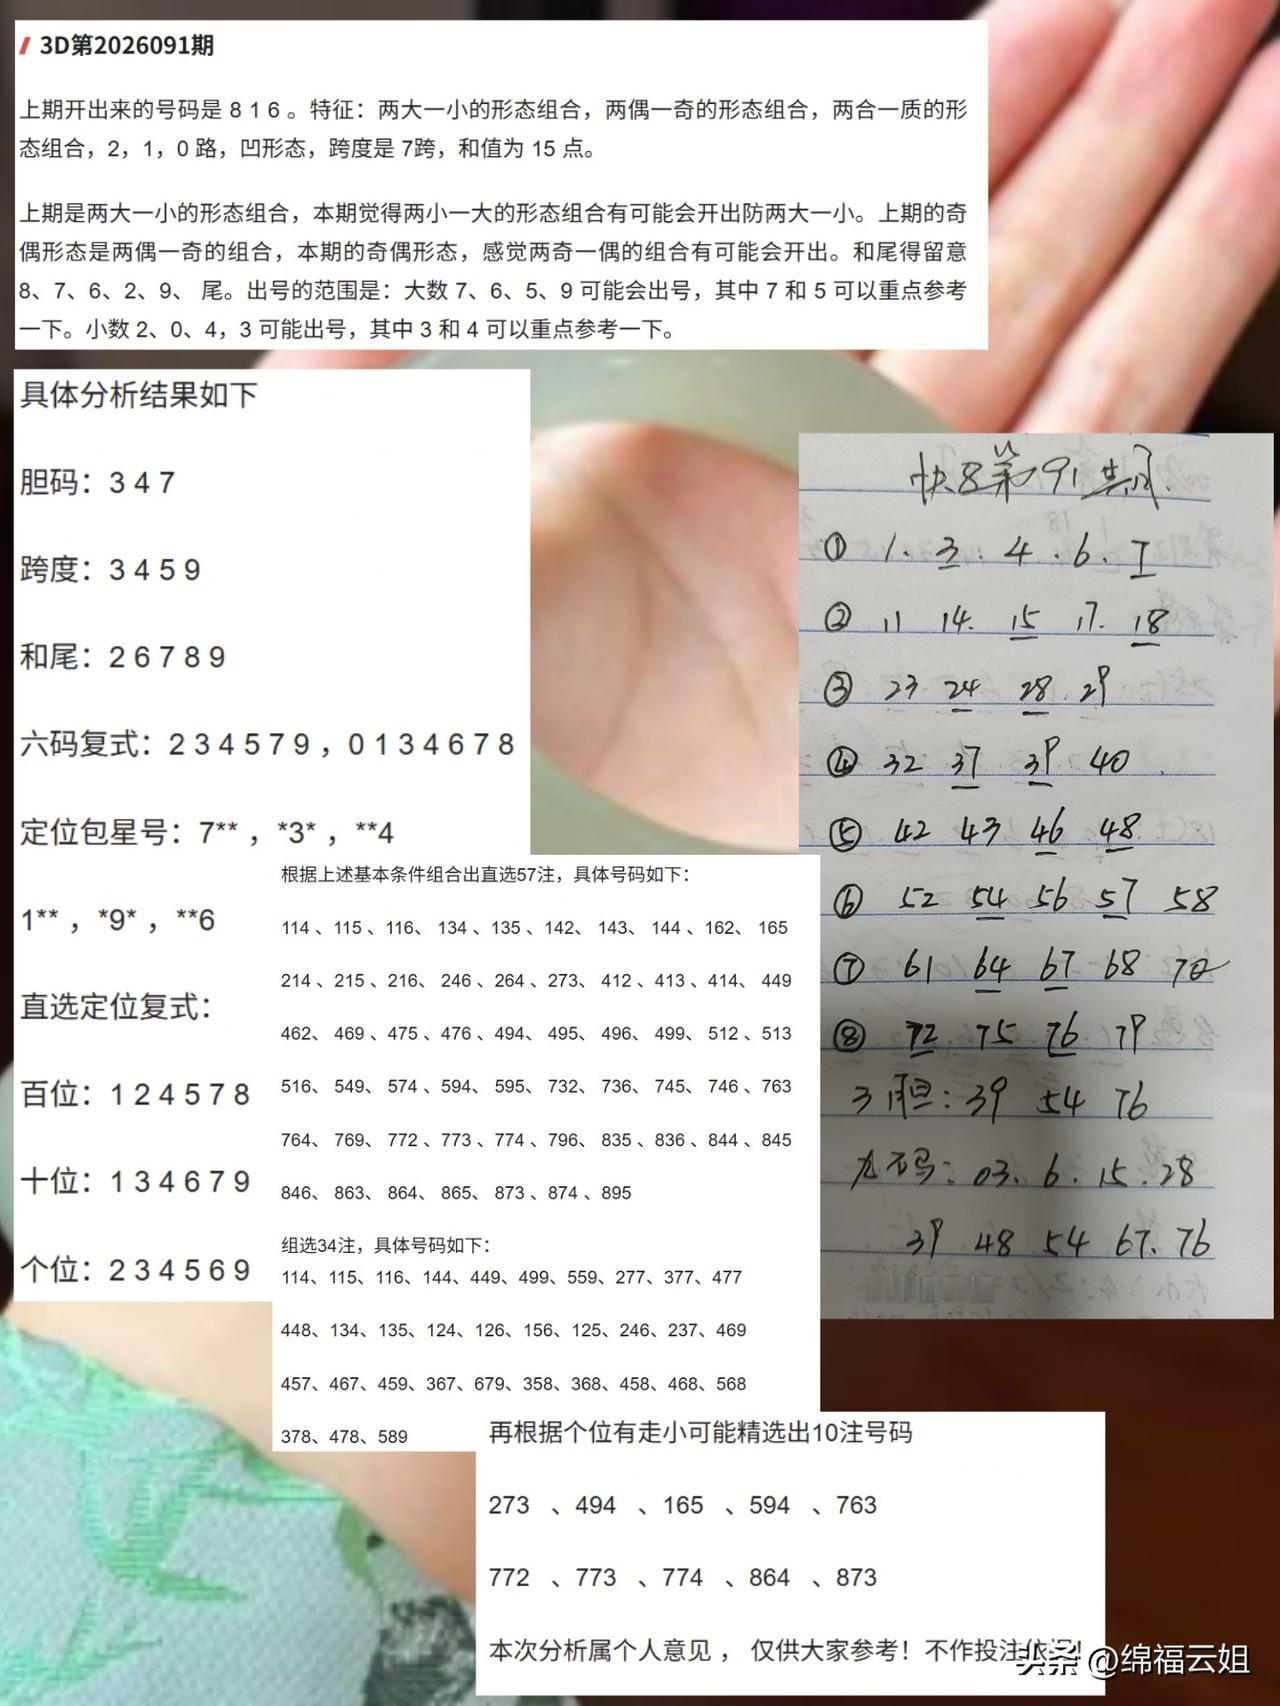 3D第2026091期
上期开出来的号码是 8 1 6 。特征：两大一小的形态组合，两偶一奇的形态组合，两合一质的形
态组合，2，1，0 路，凹形态，跨度是 7跨，和值为 15 点。
上期是两大一小的形态组合，本期觉得两小一大的形态组合有可能会开出防两大一小。上期的奇
偶形态是两偶一奇的组合，本期的奇偶形态，感觉两奇一偶的组合有可能会开出。和尾得留意
8、7、6、2、9、 尾。出号的范围是：大数 7、6、5、9 可能会出号，其中 7 和 5 可以重点参考
一下。小数 2、0、4，3 可能出号，其中 3 和 4 可以重点参考一下。
具体分析结果如下
胆码：3 4 7
跨度：3 4 5 9
和尾：2 6 7 8 9
六码复式：2 3 4 5 7 9 ，0 1 3 4 6 7 8
定位包星号：7** ，*3* ，**4
1** ，*9* ，**6
直选定位复式：
百位：1 2 4 5 7 8
十位：1 3 4 6 7 9
个位：2 3 4 5 6 9
根据上述基本条件组合出直选57注，具体号码如下：
114 、115 、116、 134 、135 、142、 143、 144 、162、 165
214 、215 、216、 246 、264 、273、 412 、413 、414、 449
462、 469 、475 、476 、494、 495、 496、 499、 512 、513
516、 549、 574 、594、 595、 732、 736、 745、 746 、763
764、 769、 772 、773 、774 、796、 835 、836 、844 、845
846、 863、 864、 865、 873 、874 、895
组选34注，具体号码如下：
114、115、116、144、449、499、559、277、377、477
448、134、135、124、126、156、125、246、237、469
457、467、459、367、679、358、368、458、468、568
378、478、589
再根据个位有走小可能精选出10注号码
273 、494 、165 、594 、763
772 、773 、774 、864 、873
本次分析属个人意见 ， 仅供大家参考！不作投注依据！
快8第91期
① 1. 3. 4. 6. 7
② 11 14. 15 17. 18
③ 23 24 28. 29
④ 32 37 39 40
⑤ 42 43 46 48
⑥ 52 54 56 57 58
⑦ 61 64 67 68 70
⑧ 72 75 76 79
3胆：39 54 76
九码：03. 6. 15. 28
39 48 54 67. 76
头条 @绵福云姐